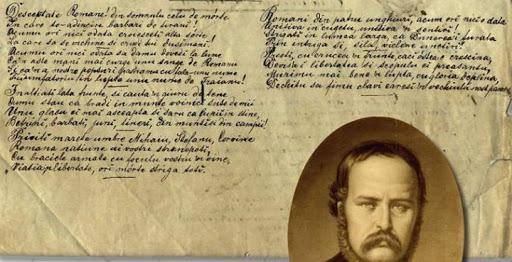 Desceptate Romane! din somnulu celu de mórte
In care te-adâncira barbari de tirani!
Acumu ori nici odata croesceti alta sórte,
La care sa se inchine si crudii tei dusimani!
Acumu ori nici odata sa damu dovedi la lume
Ca'n aste mani mai curge unu sange de Romanu
Si ca'n a nostre pepturi pastramu cu fala unu nume
Triumfatoru in lupte unu nume de Traianu!
Inaltiati lata frunte si cauta'n giuru de tene
Cumu stau ca bradi in munte voinici sute de mii
Unu glasu ei mai accepta si saru ca lupii'n stane,
Betrani, barbati, juni, tineri, din munti si din campii!
Priviti marete umbre Mihaiu, Stefanu, Corvine
Romana natiune ai vostri stranepoti,
Cu braciele armate cu foculu vostru'n vine,
Viatia'n libertate, ori mórte striga toti.
Romani din patru unghiuri, acum ori nici odata
Uniti-ve in cugetu, uniti-ve'n sentiri!
Strigati in lumea larga, ca Dunarea-i furata
Prin intriga si sila, viclene unetiri!
Preoti, cu crucea'n frunte, caci óstea e crestina,
Devis'a-i libertatea si scopulu ei preasantu,
Murimu mai bene'n lupta, cu gloria deplina,
Decâtu sa fimu sclavi earasi in vechiulu nost' pamentu